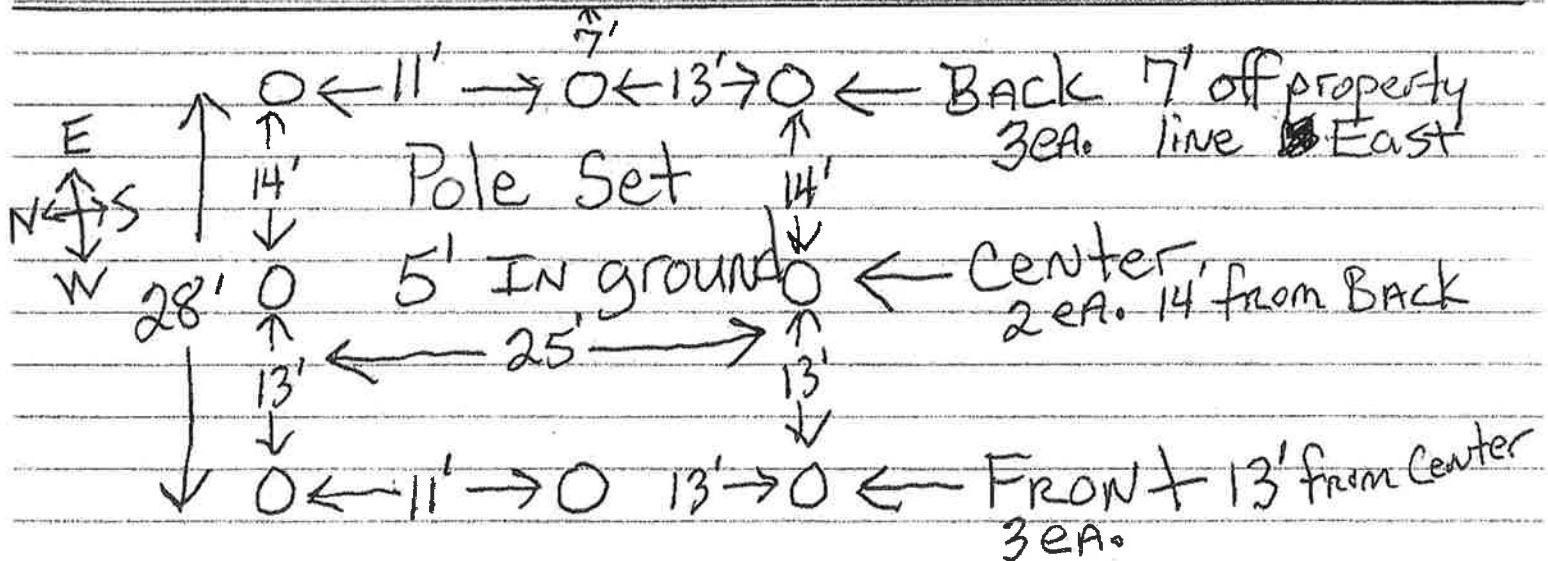 7'
11' 13' BACK 7' off property
3 EA. line East
E
14' Pole Set 14'
N S
W 28' 5' IN ground Center
2 EA. 14' from BACK
25'
13' 13'
11' 13' FRONT 13' from Center
3 EA.